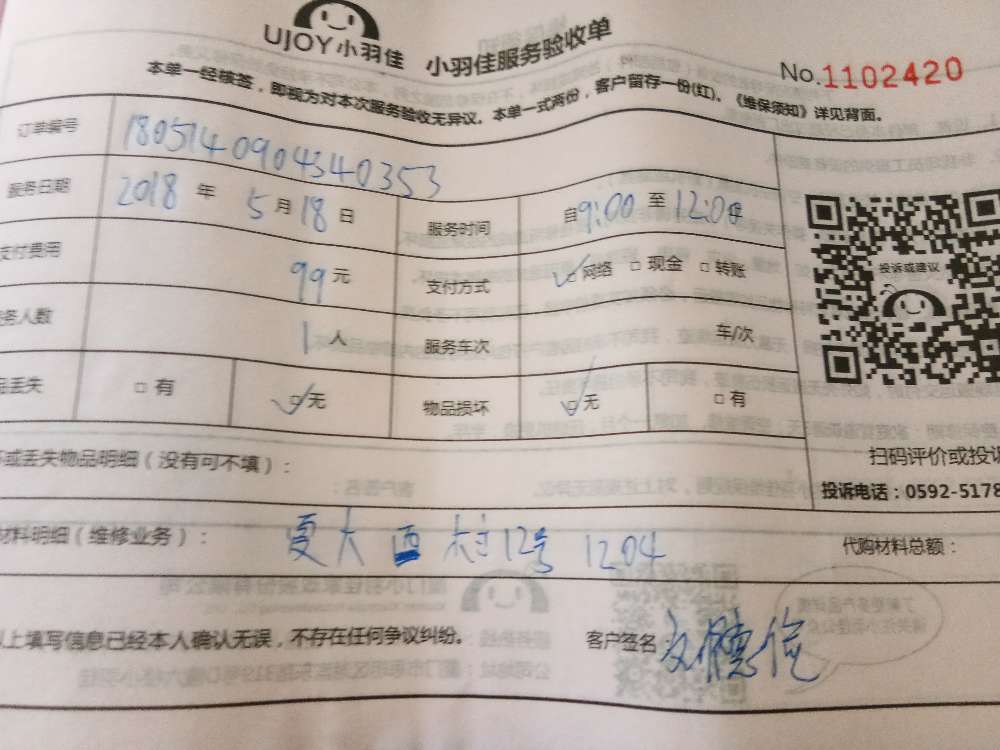 UJOY小羽佳 小羽佳服务验收单
No.1102420
本单一经核签，即视为对本次服务验收无异议。本单一式两份，客户留存一份(红)。《维保须知》详见背面。
订单编号 1805140904340353
服务日期 2018 年 5 月 18 日 服务时间 自9:00 至 12:00时
支付费用 99 元 支付方式 ☑网络 □现金 □转账
务人数 1 人 服务车次 车/次
品丢失 □有 ☑无 物品损坏 ☑无 □有
投诉或建议
扫码评价或投诉
投诉电话：0592-5178
坏或丢失物品明细（没有可不填）：
材料明细（维修业务）： 厦大西村12号 1204 代购材料总额：
以上填写信息已经本人确认无误，不存在任何争议纠纷。 客户签名